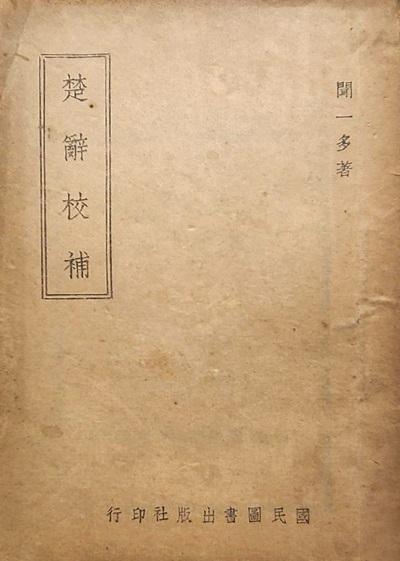 聞一多著
楚辭校補
國民圖書出版社印行